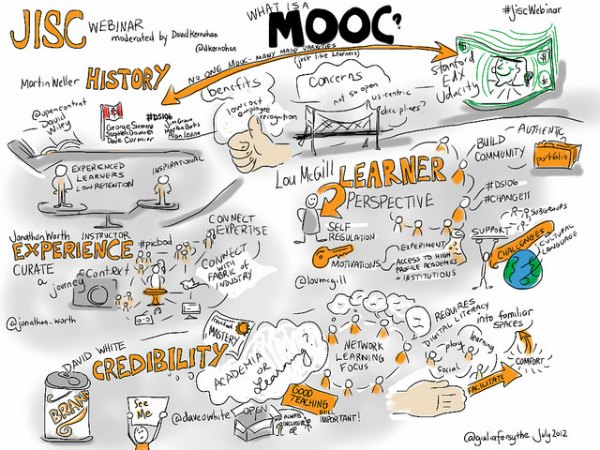 JISC WEBINAR
moderated by David Kernohan
@dkernohan
WHAT IS A
MOOC?
#jiscWebinar
NO ONE MOOC - MANY MANY VARIETIES
(just like learners)
Martin Weller HISTORY
@opencontent
David
Wiley
#DS106
George Siemens
Stephen Downes
Dave Cormier
Jim Groom
Martha Burtis
Alan Levine
benefits
low cost
employment
recognition
Concerns
not so open
us-centric
disciplines?
Stanford
EdX
Udacity
EXPERIENCED
LEARNERS
LOW RETENTION
INSPIRATIONAL
Lou McGill LEARNER
PERSPECTIVE
SELF
REGULATION
MOTIVATIONS
EXPERIMENT
ACCESS TO HIGH
PROFILE ACADEMICS
+ INSTITUTIONS
@loumcgill
BUILD
COMMUNITY
AUTHENTIC
portfolio
#DS106
#CHANGE11
SUBGROUPS
SUPPORT
CHALLENGES
CULTURAL
LANGUAGE
Jonathan Worth INSTRUCTOR
EXPERIENCE
#picbod
CURATE
a journey
Context
CONNECT
EXPERTISE
CONNECT
WITH
FABRIC of
INDUSTRY
@jonathan_worth
DAVID WHITE
CREDIBILITY
BRAND
See
Me
@daveowhite
MASTERY
ACADEMIA
or
Learning?
OPEN
ALWAYS
INCLUSIVE
GOOD
TEACHING
still
IMPORTANT!
NETWORK
LEARNING
FOCUS
REQUIRES
DIGITAL LITERACY
play
learning
social
into familiar
SPACES
COMFORT
FACILITATE
@giuliaforsythe July 2012